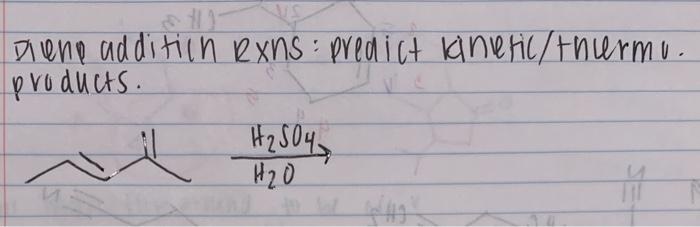 Diene addition rxns: predict kinetic/thermo.
products.
H₂SO₄
H₂O